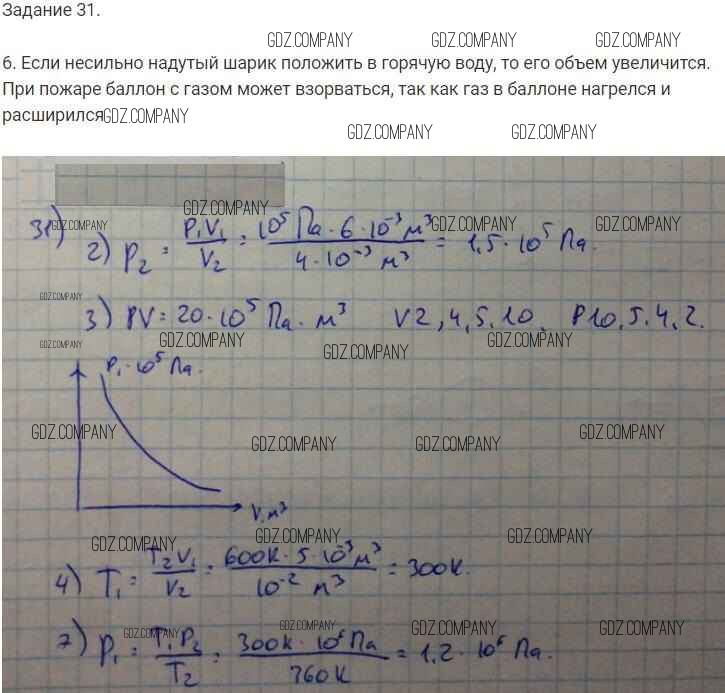 Задание 31.
GDZ.COMPANY GDZ.COMPANY GDZ.COMPANY
6. Если несильно надутый шарик положить в горячую воду, то его объем увеличится.
При пожаре баллон с газом может взорваться, так как газ в баллоне нагрелся и
расширился GDZ.COMPANY
GDZ.COMPANY GDZ.COMPANY
GDZ.COMPANY
31) GDZ.COMPANY GDZ.COMPANY GDZ.COMPANY
2) P₂ = P₁V₁/V₂ = 10⁵ Па · 6 · 10⁻³ м³ / 4 · 10⁻³ м³ = 1,5 · 10⁵ Па.
GDZ.COMPANY
3) PV = 20 · 10⁵ Па · м³ V 2, 4, 5, 10. P 10, 5, 4, 2.
GDZ.COMPANY GDZ.COMPANY GDZ.COMPANY GDZ.COMPANY
P, · 10⁵ Па.
GDZ.COMPANY GDZ.COMPANY GDZ.COMPANY GDZ.COMPANY
V, м³
GDZ.COMPANY GDZ.COMPANY GDZ.COMPANY
4) T₁ = T₂V₁/V₂ = 600К · 5 · 10⁻³ м³ / 10⁻² м³ = 300К.
GDZ.COMPANY GDZ.COMPANY GDZ.COMPANY GDZ.COMPANY
7) P₁ = T₁P₂/T₂ = 300К · 10⁶ Па / 360К = 1,2 · 10⁶ Па.